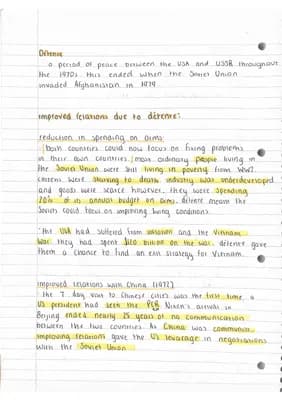 Détente
a period of peace between the USA and USSR throughout
the 1970s. this ended when the Soviet Union
invaded Afghanistan in 1979
improved relations due to détente:
reduction in spending on arms:
both countries could now focus on fixing problems
in their own countries. most ordinary people living in
the Soviet Union were still living in poverty from WW2.
citizens were starving to death, industry was underdeveloped
and goods were scarce however, they were spending
20% of its annual budget on arms. détente meant the
Soviets could focus on improving living conditions.
the USA had suffered from inflation and the Vietnam
War. they had spent $120 billion on the war. détente gave
them a chance to find an exit strategy for Vietnam.
improved relations with China (1972)
the 7 day visit to Chinese cities was the first time a
US president had seen the PRC. Nixon's arrival in
Beijing ended nearly 25 years of no communication
between the two countries. As China was communist,
improving relations gave the US leverage in negotiations
with the Soviet Union